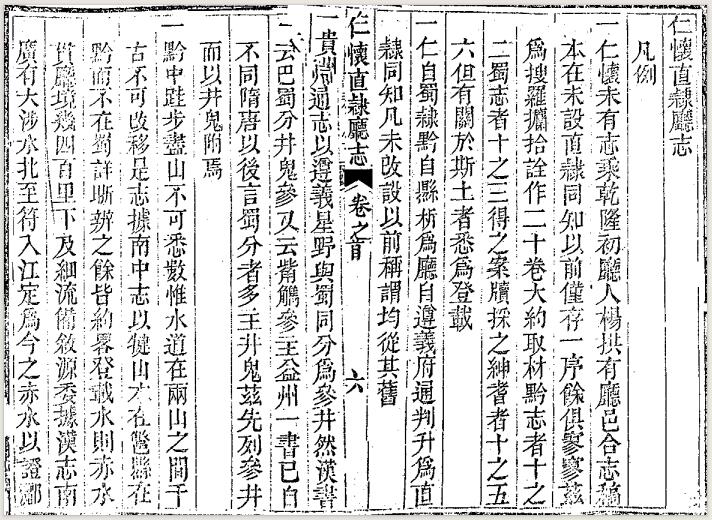 仁懷直隸廳志
凡例
一仁懷未有志乘乾隆初廳人楊拱有廳邑合志稿
本在未設直隸同知以前僅存一序餘俱寥寥茲
爲搜羅攟拾詮作二十卷大約取材黔志者十之
二蜀志者十之三得之案牘採之紳耆者十之五
六但有關於斯土者悉爲登載
一仁自蜀隸黔自縣析爲廳自遵義府通判升爲直
隸同知凡未改設以前稱謂均從其舊
仁懷直隸廳志 卷之首 六
一貴州通志以遵義星野與蜀同分爲參井然漢書
云巴蜀分井鬼參又云觜觿參主益州一書已自
不同隋唐以後言蜀分者多主井鬼茲先列參井
而以井鬼附焉
一黔中跬步盡山不可悉數惟水道在兩山之間千
古不可改移是志據南中志以犍山本在鄨縣在
黔而不在蜀詳晰辨之餘皆約畧登載水則赤水
貫廳境幾四百里下及細流備敘源委據漢志南
廣有大涉水北至符入江定爲今之赤水以證酈